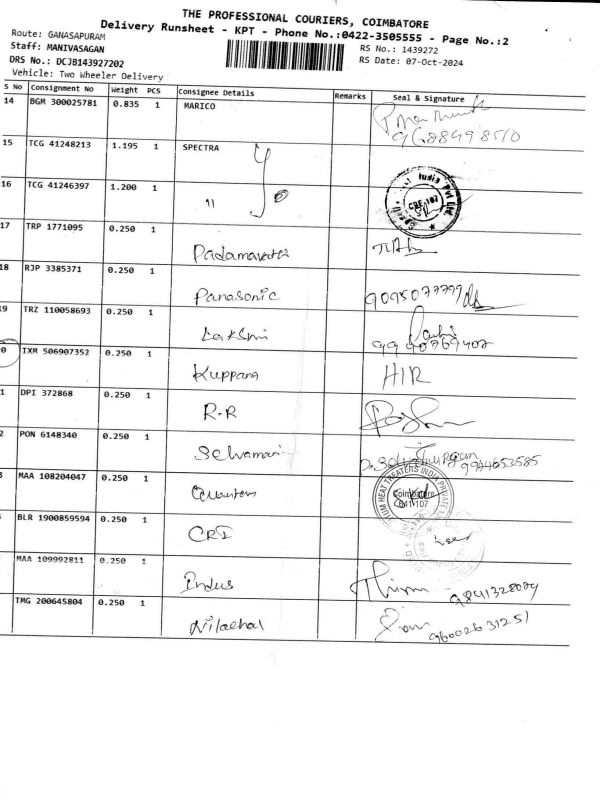 THE PROFESSIONAL COURIERS, COIMBATORE
Delivery Runsheet - KPT - Phone No.:0422-3505555 - Page No.:2
Route: GANASAPURAM
RS No.: 1439272
Staff: MANIVASAGAN
RS Date: 07-Oct-2024
DRS No.: DCJB143927202
Vehicle: Two Wheeler Delivery
S No Consignment No Weight PCS Consignee Details Remarks Seal & Signature
14 BGM 300025781 0.835 1 MARICO 9688498510
15 TCG 41248213 1.195 1 SPECTRA
16 TCG 41246397 1.200 1 "
India Pvt Ltd. CBE-107
17 TRP 1771095 0.250 1 Padamavathi
18 RJP 3385371 0.250 1 Panasonic 9095077799
19 TRZ 110058693 0.250 1 Lakshmi 9990769402
0 IXM 506907352 0.250 1 Kuppana HIR
1 DPI 372868 0.250 1 R.R
2 PON 6148340 0.250 1 Selvamani 9944653585
3 MAA 108204047 0.250 1 Quantum
HEAT TREATERS INDIA PRIVATE
Coimbatore
641 107
BLR 1900859594 0.250 1 CRI
MAA 109992811 0.250 1 Indus 9841328024
TMG 200645804 0.250 1 Nilachal 96002631251